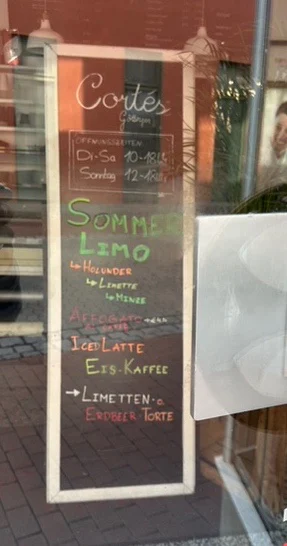 Cortés
Göttingen
ÖFFNUNGSZEITEN:
Di-Sa 10-18 Uhr
Sonntag 12-18 Uhr
SOMMER
LIMO
↳ HOLUNDER
↳ LIMETTE
↳ MINZE
AFFOGATO
ICED LATTE
EIS-KAFFEE
→ LIMETTEN- o.
ERDBEER-TORTE